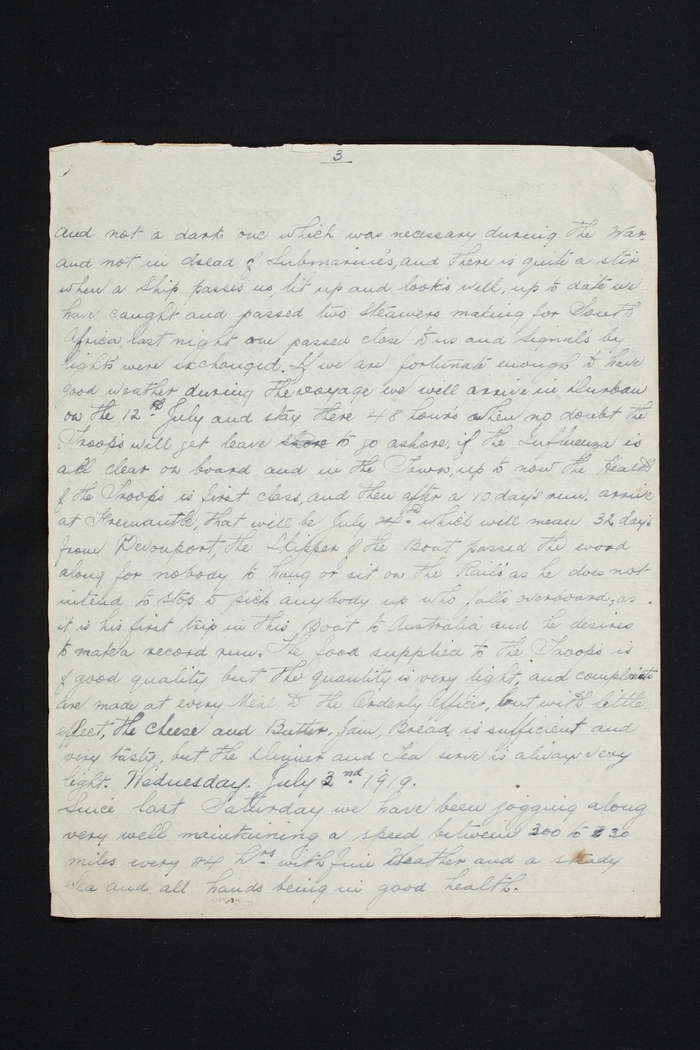 3
and not a dark one which was necessary during the War,
and not in dread of Submarine's, and there is quite a stir
when a Ship passes us, lit up and looks well, up to date we
have caught and passed two Steamers making for South
Africa, last night one passed close to us and signals by
lights were exchanged. If we are fortunate enough to have
good weather during the voyage we will arrive in Durban
on the 12th July and stay there 48 hours when no doubt the
Troops will get leave to go ashore, if the Influenza is
all clear on board and in the Town, up to now the Health
of the Troops is first class, and then after a 10 day's run, arrive
at Fremantle, that will be July 24th which will mean 32 day's
from Devonport, the Skipper of the Boat passed the word
along for nobody to hang or sit on the Rail's as he does not
intend to stop to pick anybody up who falls overboard, as
it is his first trip in this Boat to Australia and he desires
to make a record run. The food supplied to the Troops is
of good quality but the quantity is very light, and complaints
are made at every Meal to the Orderly Officer, but with little
effect, the cheese and Butter, Jam, Bread, is sufficient and
very tasty, but the Dinner and Tea serve is always very
light. Wednesday. July 2nd 1919.
Since last Satturday we have been jogging along
very well maintaining a speed between 300 to 330
miles every 24 hrs with fine Weather and a steady
Sea and all hands being in good health.